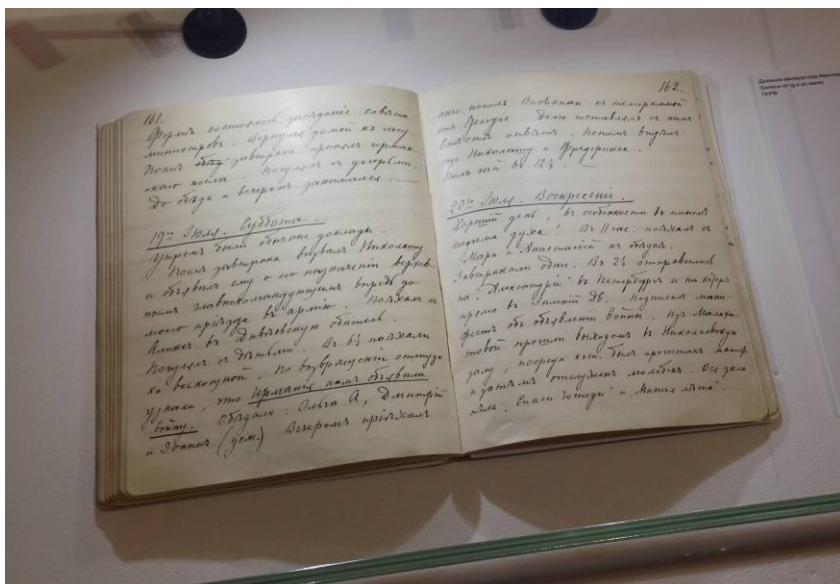 161.
Фермѣ состоялось засѣданіе совѣта
министровъ. Вернулся домой къ часу.
Послѣ завтрака принялъ герман-
скаго посла. Погулялъ съ дочерьми.
До обѣда и вечеромъ занимался.
19го Іюля. Суббота.
Утромъ были обычные доклады.
Послѣ завтрака вызвалъ Николашу
и объявилъ ему о его назначеніи верхов-
нымъ главнокомандующимъ впредь до
моего пріѣзда въ армію. Поѣхалъ съ
Аликсъ въ Дивѣевскую обитель.
Погулялъ съ дѣтьми. Въ 6½ поѣхали
ко всенощной. По возвращеніи оттуда
узнали, что Германія намъ объявила
войну. Обѣдали: Ольга А, Дмитрій
и Іоаннъ (деж.) Вечеромъ пріѣхалъ
162.
англ. посолъ Buchanan съ телеграммой
отъ Georgie. Долго составлялъ съ нимъ
вмѣстѣ отвѣтъ. Потомъ видѣлъ
еще Николашу и Фредерикса.
Пилъ чай въ 12¼.
20го Іюля. Воскресеніе.
Хорошій день, въ особенности въ смыслѣ
подъема духа! Въ 11 час. поѣхалъ съ
Мари и Анастасіей къ обѣднѣ.
Завтракали одни. Въ 2¼ отправились
на „Александріи" въ Петербургъ и на катерѣ
прямо въ Зимній дв. Подписалъ мани-
фестъ объ объявленіи войны. Изъ Малахи-
товой прошли выходомъ въ Николаевскую
залу, посреди кот. былъ прочитанъ маниф.
и затѣмъ отслуженъ молебенъ. Вся зала
пѣла „Спаси Господи" и „Многая лѣта".
Дневник императора
Записи от 19 и 20 июля
ГАРФ